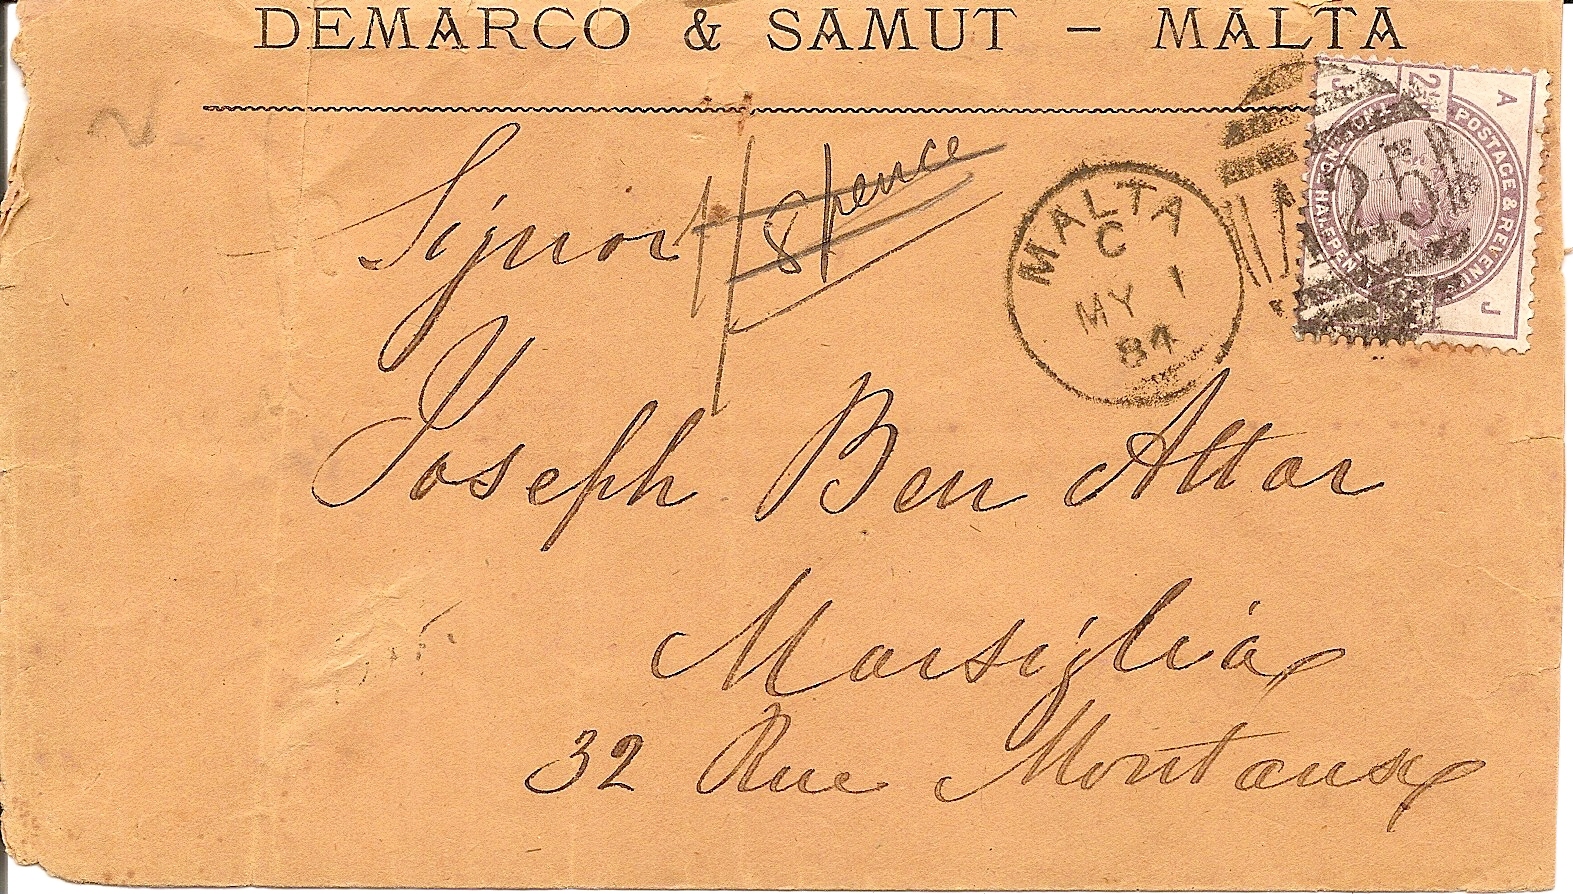 DEMARCO & SAMUT – MALTA
Signor
8/pence
MALTA
C
MY 1
84
A 25
POSTAGE & REVENUE
HALFPENNY
2½
A
J
J
Joseph Ben Attar
Marsiglia
32 Rue Montaux